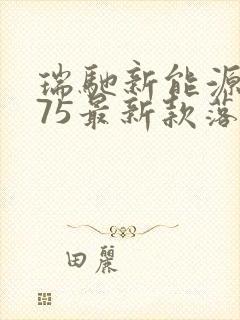 瑞馳新能源
75最新款落
田麗